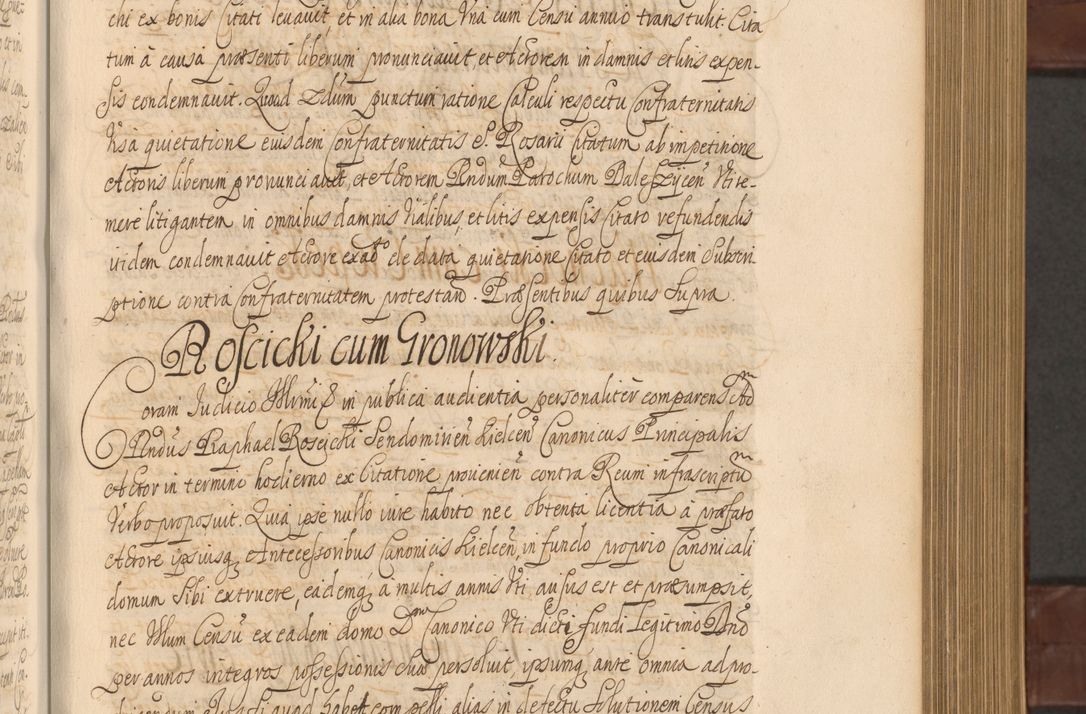 chi ex bonis Citati levavit, et in alia bona Vna cum Censu annuo transtulit. Cita
tum à causa præsenti liberum pronunciavit, et Actorem in damnis et litis expen-
sis condemnavit. Quod 2dum punctum ratione Calculi respectu Confraternitatis
Visa quietatione eiusdem Confraternitatis S. Rosarii Citatum ab impetitione
Actoris liberum pronunciavit, et Actorem Rndum Parochum Daleszycen Vti te-
mere litigantem in omnibus damnis Vialibus, et litis expensis Citato refundendis
itidem condemnavit Actore ex ad° de data quietatione Citato et eiusdem Subscri
ptione contra Confraternitatem protestand. Præsentibus quibus Supra.
Roscicki cum Gronowski.
Coram Iudicio Illrmi &. in publica audientia personaliter comparens Adm
Rndus Raphael Roscicki Sendomirien Kielcen Canonicus Principalis
Actor in termino hodierno ex Citatione provenien contra Reum infrascriptum
Verbo proposuit. Quia ipse nullo iure habito nec obtenta licentia à præfato
Actore ipsiusq, Antecessoribus Canonicis Kielcen, in fundo proprio Canonicali
domum Sibi extruere, eademq, à multis annis Vti ausus est et præsumpsit,
nec Vllum Censu ex eadem domo Dno Canonico Vti dicti fundi Legitimo Dno
per annos integros possessionis Suæ persoluit, ipsumq, ante omnia ad pro-
Si quid habet compelli alias in defectu Solutionem Census